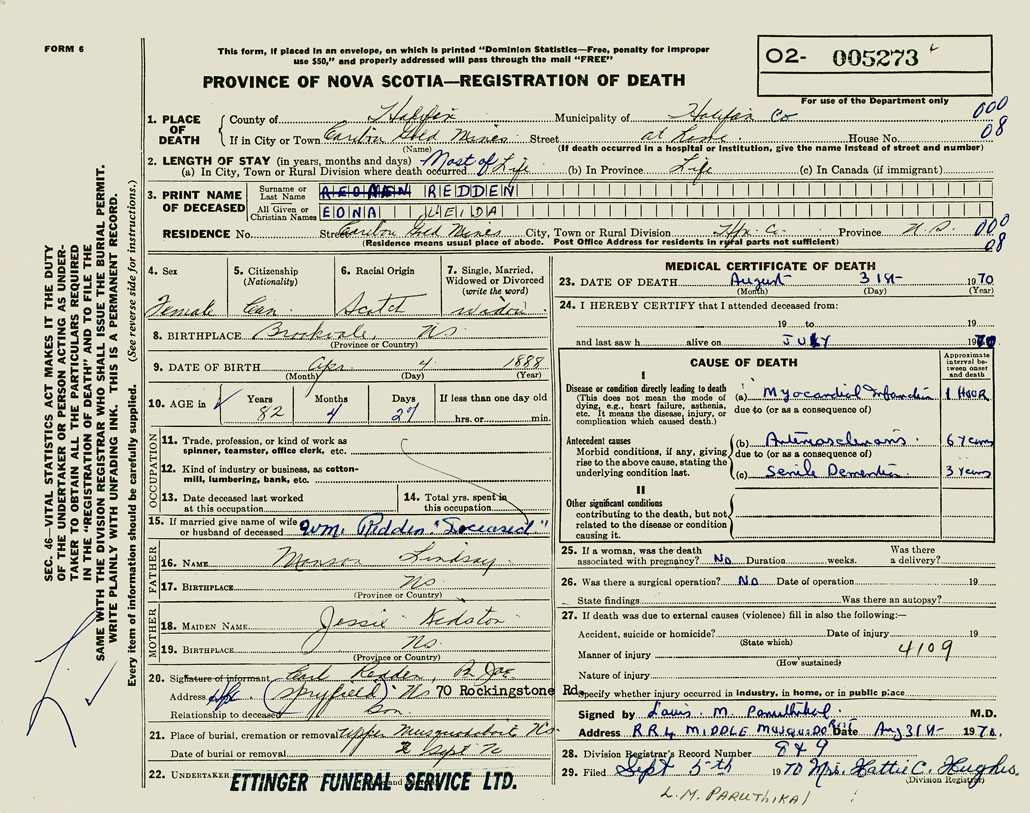 FORM 6
This form, if placed in an envelope, on which is printed "Dominion Statistics—Free, penalty for improper
use $50," and properly addressed will pass through the mail "FREE"
O2- 005273
PROVINCE OF NOVA SCOTIA—REGISTRATION OF DEATH
For use of the Department only
1. PLACE OF DEATH County of Halifax Municipality of Halifax Co 000
If in City or Town Caribou Gold Mines Street at home House No. 08
(Name) (If death occurred in a hospital or institution, give the name instead of street and number)
2. LENGTH OF STAY (in years, months and days) Most of Life
(a) In City, Town or Rural Division where death occurred (b) In Province Life (c) In Canada (if immigrant)
3. PRINT NAME OF DECEASED Surname or Last Name REDDEN
All Given or Christian Names EDNA LEIDA
RESIDENCE No. Street Caribou Gold Mines City, Town or Rural Division Hfx. Co. Province N.S. 000
(Residence means usual place of abode. Post Office Address for residents in rural parts not sufficient) 08
4. Sex Female
5. Citizenship (Nationality) Can.
6. Racial Origin Scotch
7. Single, Married, Widowed or Divorced (write the word) Widow
8. BIRTHPLACE Brookvale, NS
(Province or Country)
9. DATE OF BIRTH Apr 4 1888
(Month) (Day) (Year)
10. AGE in Years 82 Months 4 Days 27 If less than one day old hrs. or min.
OCCUPATION
11. Trade, profession, or kind of work as
spinner, teamster, office clerk, etc.
12. Kind of industry or business, as cotton-
mill, lumbering, bank, etc.
13. Date deceased last worked
at this occupation
14. Total yrs. spent in
this occupation
15. If married give name of wife
or husband of deceased Wm. Redden "Deceased"
FATHER
16. NAME Lindsay
17. BIRTHPLACE NS
(Province or Country)
MOTHER
18. MAIDEN NAME Jessie Kidston
19. BIRTHPLACE NS
(Province or Country)
20. Signature of informant Earl Redden
Address (Spryfield) NS 70 Rockingstone Rd.
Relationship to deceased Son
21. Place of burial, cremation or removal Upper Musquodoboit NS
Date of burial or removal 2 Sept
22. UNDERTAKER ETTINGER FUNERAL SERVICE LTD.
MEDICAL CERTIFICATE OF DEATH
23. DATE OF DEATH August 31st 1970
(Month) (Day) (Year)
24. I HEREBY CERTIFY that I attended deceased from:
19 to 19
and last saw h alive on JULY 1970
CAUSE OF DEATH
Approximate interval between onset and death
I
Disease or condition directly leading to death
(This does not mean the mode of
dying, e.g., heart failure, asthenia,
etc. It means the disease, injury, or
complication which caused death.)
(a) Myocardial Infarction 1 HOUR
due to (or as a consequence of)
Antecedent causes
Morbid conditions, if any, giving
rise to the above cause, stating the
underlying condition last.
(b) Arteriosclerosis 6 Years
due to (or as a consequence of)
(c) Senile Dementia 3 Years
II
Other significant conditions
contributing to the death, but not
related to the disease or condition
causing it.
25. If a woman, was the death
associated with pregnancy? No Duration weeks. Was there a delivery?
26. Was there a surgical operation? No Date of operation 19
State findings Was there an autopsy?
27. If death was due to external causes (violence) fill in also the following:—
Accident, suicide or homicide? Date of injury 19
(State which)
Manner of injury 4109
(How sustained)
Nature of injury
Specify whether injury occurred in industry, in home, or in public place
Signed by Louis M. Paruthikal M.D.
Address R.R.4 MIDDLE MUSQUODOBOIT Date Aug 31st 1970
28. Division Registrar's Record Number 849
29. Filed Sept 5th 1970 Mrs. Hattie C. Hughes.
(Division Registrar)
L.M. PARUTHIKAL
SEC. 46—VITAL STATISTICS ACT MAKES IT THE DUTY
OF THE UNDERTAKER OR PERSON ACTING AS UNDER-
TAKER TO OBTAIN ALL THE PARTICULARS REQUIRED
IN THE "REGISTRATION OF DEATH" AND TO FILE THE
SAME WITH THE DIVISION REGISTRAR WHO SHALL ISSUE THE BURIAL PERMIT.
WRITE PLAINLY WITH UNFADING INK. THIS IS A PERMANENT RECORD.
Every item of information should be carefully supplied. (See reverse side for instructions.)